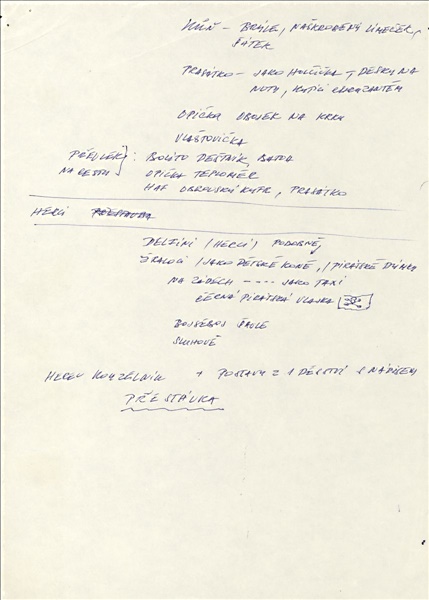 KŮŇ – BRÝLE, NAŠKROBENÝ LÍMEČEK,
ŠÁTEK
PRASÁTKO – JAKO HOLČIČKA, DESKY NA
NOTY, KYTICE CHRYZANTÉM
OPIČKA OBOJEK NA KRKU
VLAŠTOVIČKA
PŘEVLEK NA CESTU } : BOLÍTO DEŠTNÍK, BATOH
OPIČKA TEPLOMĚR
HAF OBROVSKÝ KUFR, PRASÁTKO
HERCI
DELFÍNI /HERCI/ PODOBNĚ
ŽRALOCI /JAKO DĚTSKÉ KONĚ,/ PIRÁTSKÉ
NA ZÁDECH ---- JAKO TAXI
ČERNÁ PIRÁTSKÁ VLAJKA
ŠÁLE
SLUHOVÉ
HEREC KOUZELNÍK + POSTAVY Z 1 DĚJSTVÍ S NÁPISEM
PŘESTÁVKA